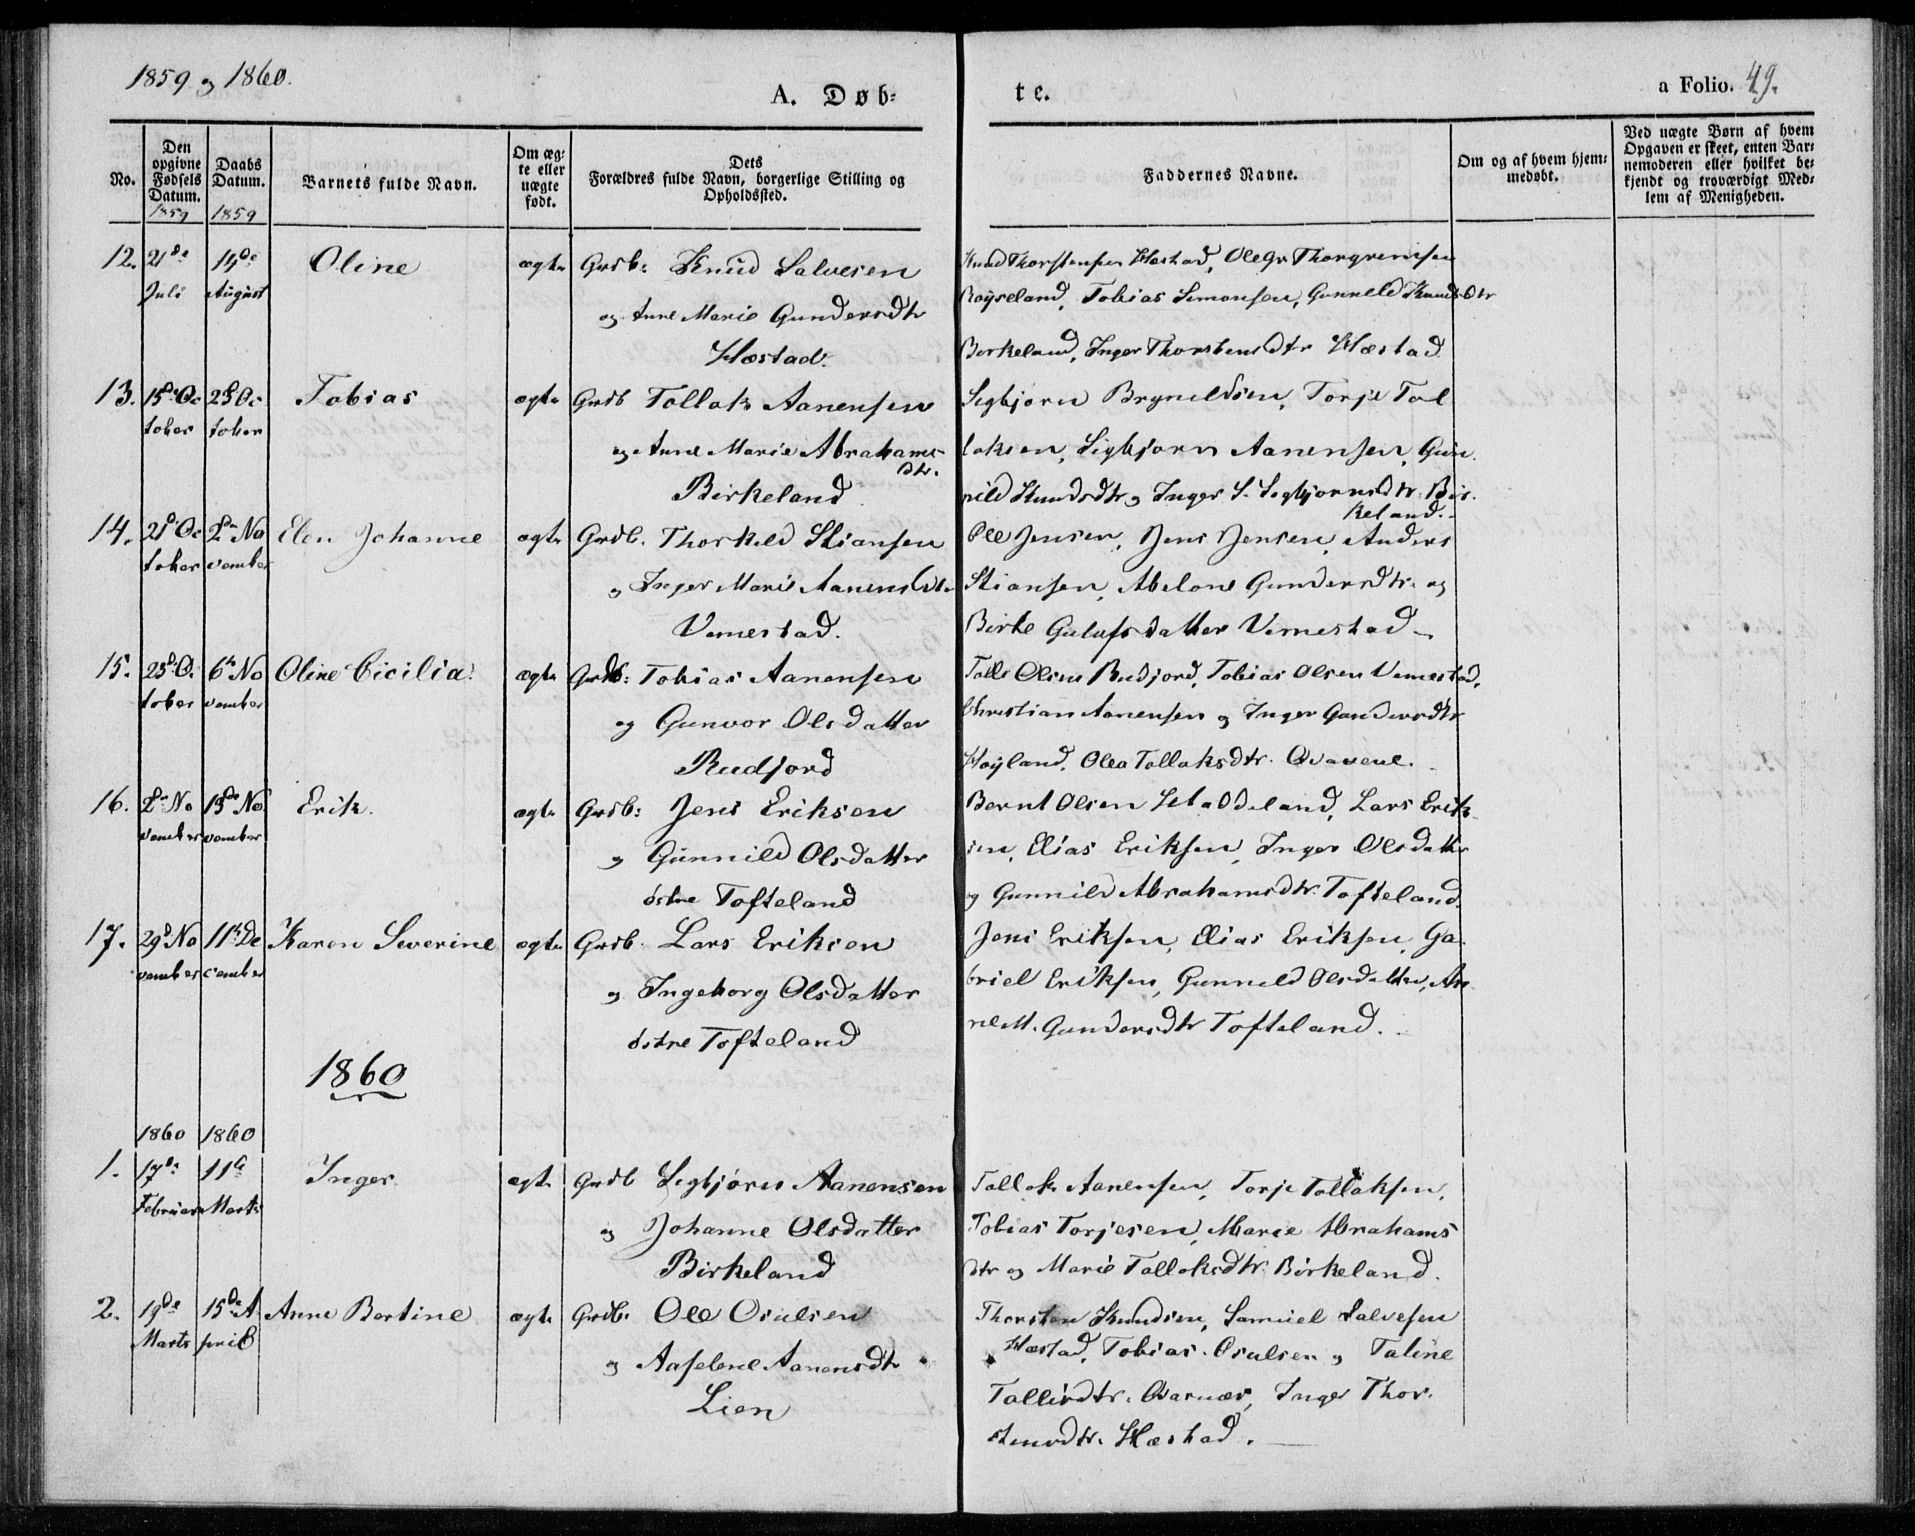 1859 og 1860.
A. Døb-
te.
a Folio. 49.
No.
Den opgivne Fødsels Datum. 1859
Daabs Datum. 1859
Barnets fulde Navn.
Om ægte eller uægte født.
Dets Forældres fulde Navn, borgerlige Stilling og Opholdssted.
Faddernes Navne.
Om og af hvem hjemmedøbt.
Ved uægte Børn af hvem
Opgaven er skeet, enten Bar-
nemoderen eller hvilket be-
kjendt og troværdigt Med-
lem af Menigheden.
12. 21de 14de Oline ægte Grdb: Knud Salvesen
Juli August og Anne Marie Gundersdtr
Hæstad.
Knud Thorstensen Hæstad, Ole Gr. Thorgrimsen
Røyseland, Tobias Simonsen, Gunneld Knudsdtr
Berkeland, Inger Thorstensdtr Hæstad
13. 15de Oc 23de Oc Tobias ægte Grdb Tollak Aanensen
tober tober og Anne Marie Abrahams-
dtr.
Birkeland
Segbjørn Bryneldsen, Torje Tol
laksen, Sigbjørn Aanensen, Gun
nild Knudsdtr og Inger S. Segbjørnsdtr Bir-
keland.
14. 21de Oc No Elen Johanne ægte Grdb. Thorkeld Stiansen
tober vember og Inger Marie Aanensdtr
Vemestad.
Ole Jensen, Jens Jensen, Anders
Stiansen, Abelone Gundersdtr og
Birte Gulufsdatter Vemestad
15. 23de O. 6te No Oline Cicilia ægte Grdb: Tobias Aanensen
tober vember og Gunvor Olsdatter
Rudjord
Tolle Olsen Rudjord, Tobias Olsen Vemestad,
Christian Aanensen og Inger Gundersdtr
Høyland, Olea Tollaksdtr. Qvavene.
16. No 13de No Erik. ægte Grdb: Jens Eriksen
vember vember og Gunnild Olsdatter
østre Tofteland
Bernt Olsen Staddeland, Lars Erik-
sen, Elias Eriksen, Inger Olsdatter
og Gunnild Abrahamsdtr. Tofteland.
17. 29de No 11te De Karen Severine ægte Grdb. Lars Eriksen
vember cember og Ingeborg Olsdatter
østre Tofteland
Jens Eriksen, Elias Eriksen, Ga-
briel Eriksen, Gunneld Olsdatter, An
ne M. Gundersdtr Tofteland.
1860
1860 1860
1. 17de 11te Inger ægte Grdb Segbjørn Aanensen
Februar Marts og Johanne Olsdatter
Birkeland
Tollak Aanensen, Torje Tollaksen,
Tobias Torjesen, Marie Abrahams
dtr og Marie Tollaksdtr. Birkeland.
2. 19de 15de A Anne Bertine ægte Grdb: Ole Osulsen
Marts pril og Aaselene Aanensdtr
Lien
Thorsten Knudsen, Samuel Salvesen
Hæstad, Tobias Osulsen og Taline
Tollevdtr. Qvarnæs, Inger Thor-
stensdtr. Hæstad.